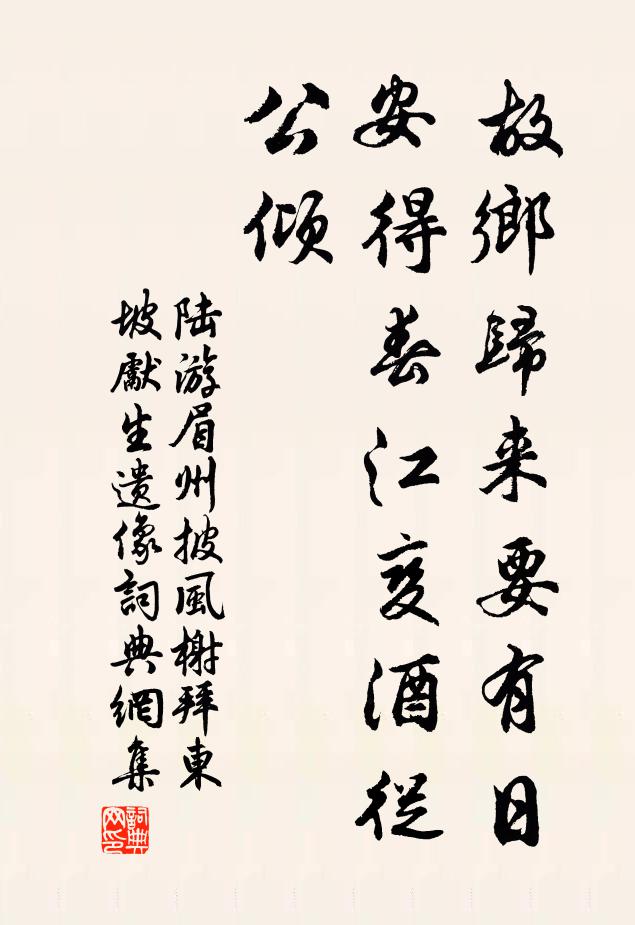 故鄉歸来要有日
安得春江变酒從
公傾
陆游眉州披風榭拜東
坡獻生遺像詞典網集
詞典
网印